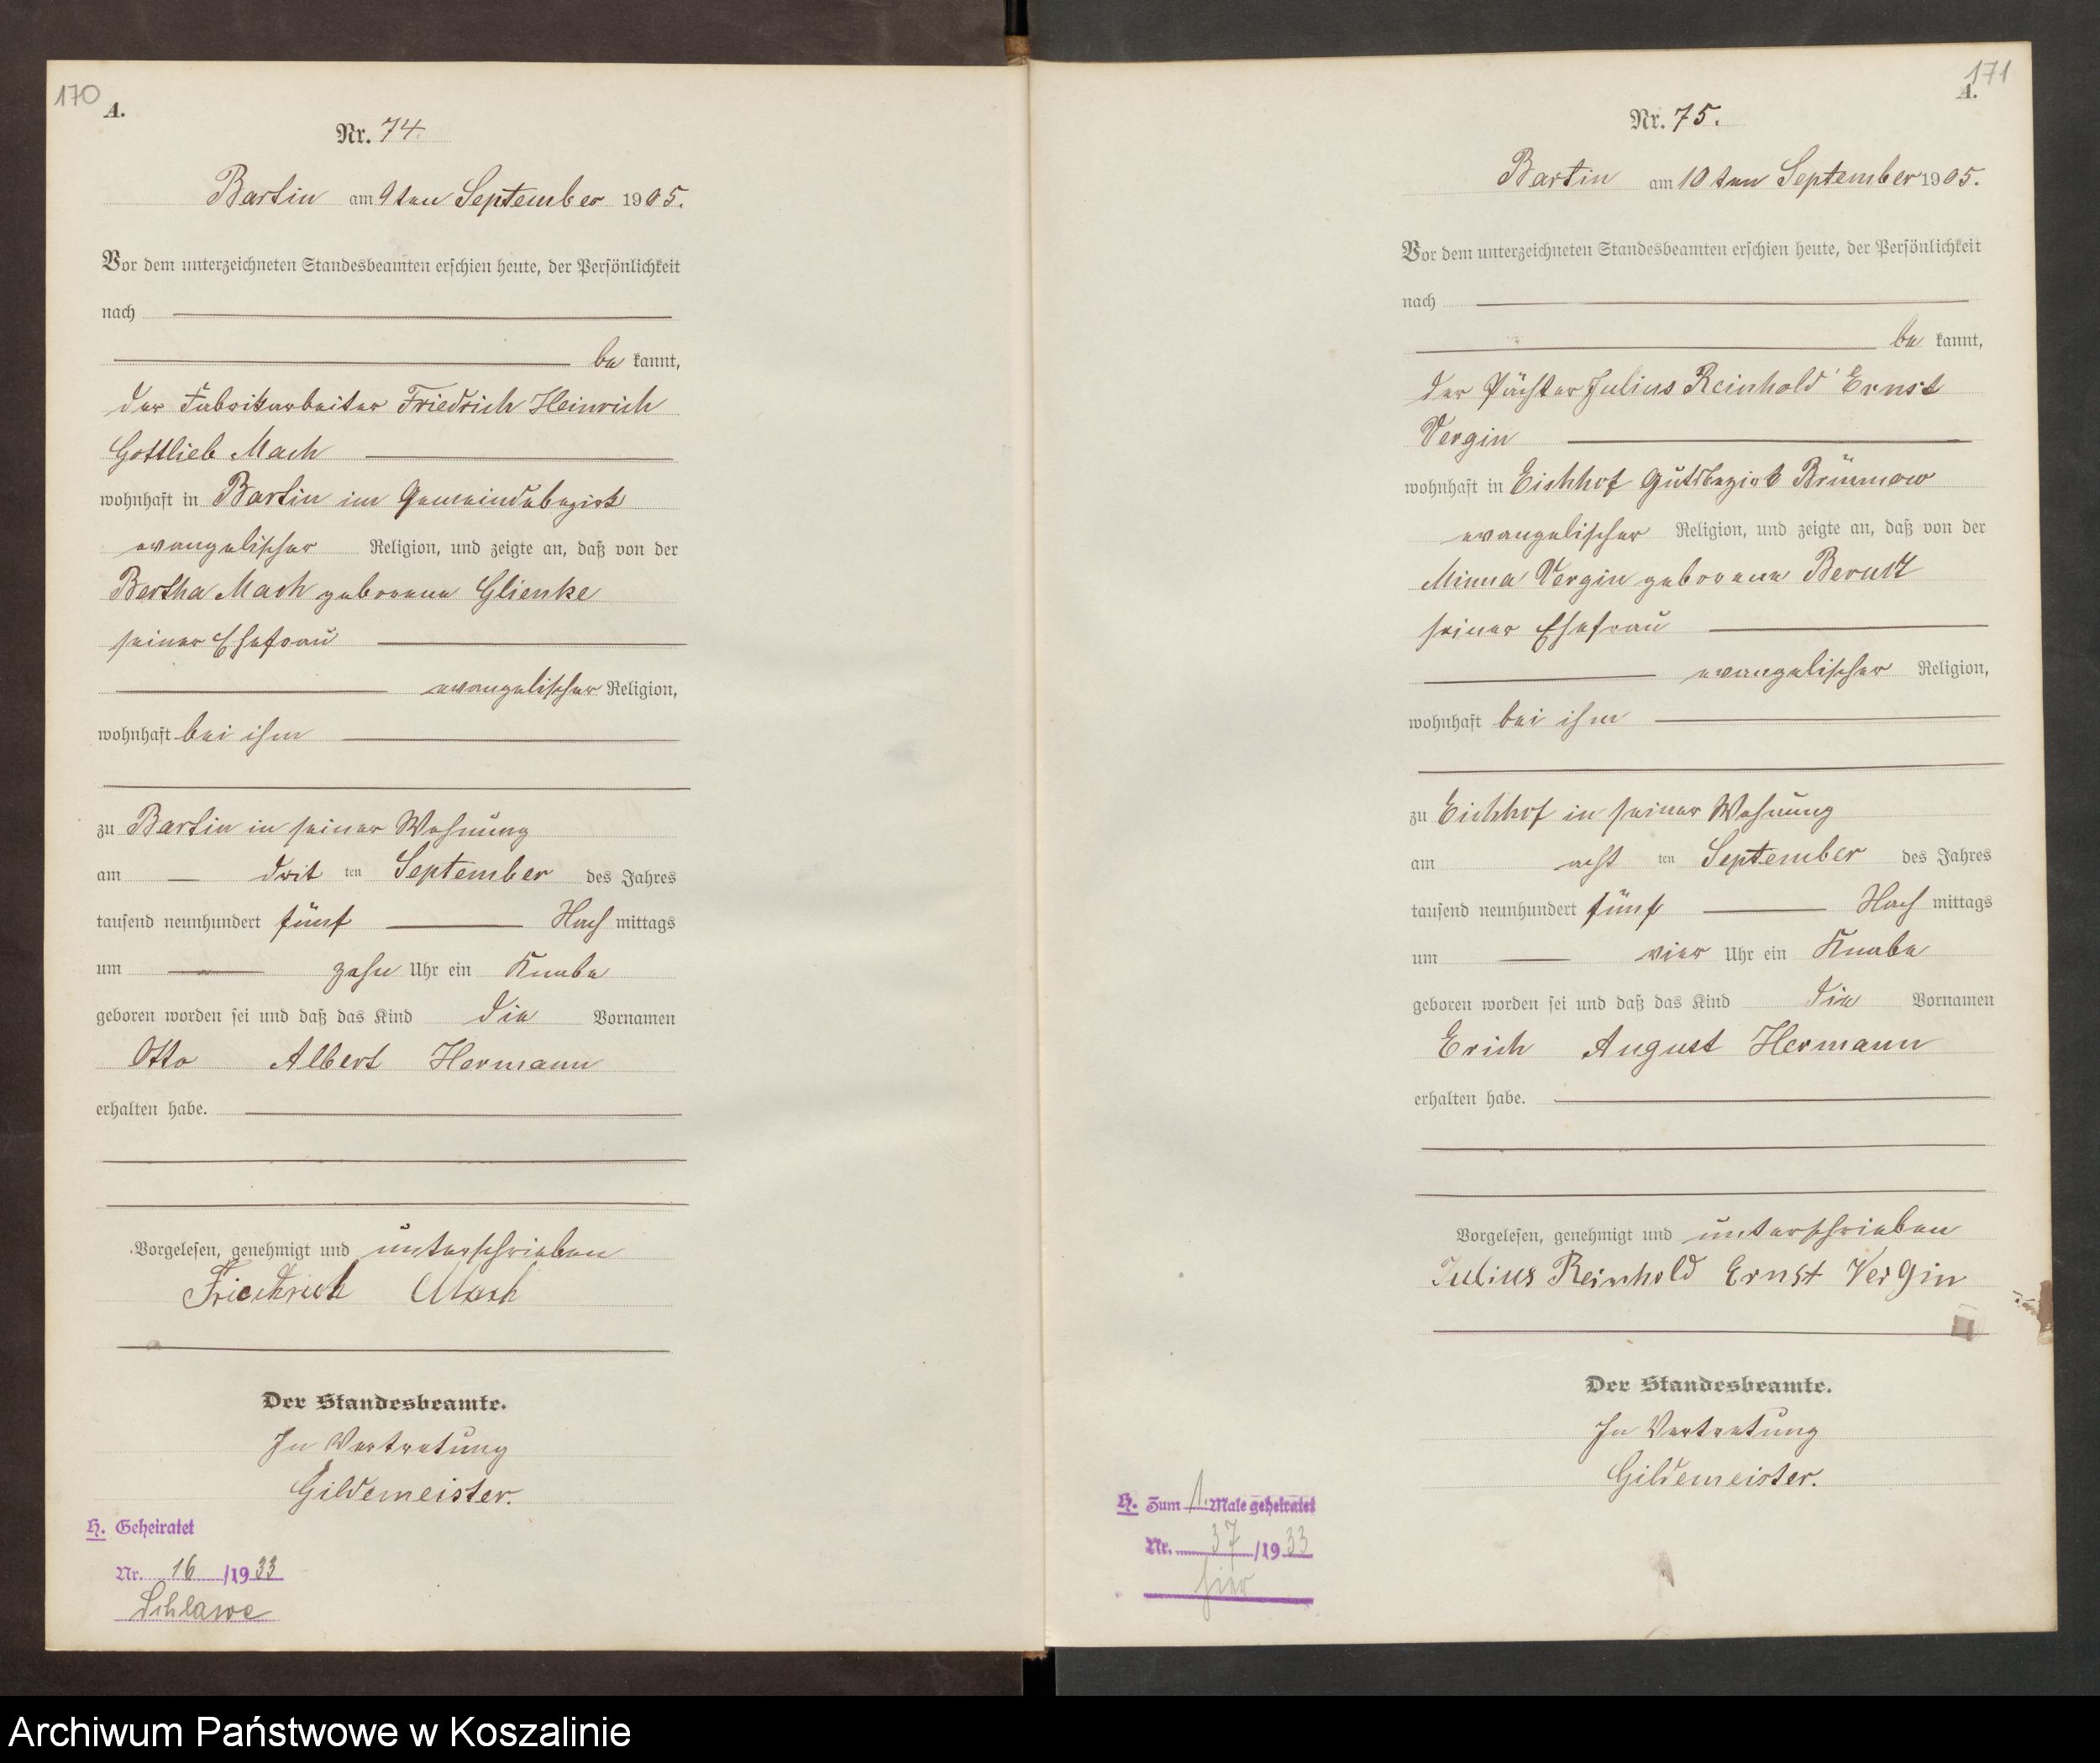 170
A.
Nr. 74.
Bartin am 9ten September 1905.
Vor dem unterzeichneten Standesbeamten erschien heute, der Persönlichkeit
nach
be kannt,
der Fabrikarbeiter Friedrich Heinrich
Gottlieb Mach
wohnhaft in Bartin im Gemeindebezirk
evangelischer Religion, und zeigte an, daß von der
Bertha Mach geborene Glienke
seiner Ehefrau
evangelischer Religion,
wohnhaft bei ihm
zu Bartin in seiner Wohnung
am dritten September des Jahres
tausend neunhundert fünf Nachmittags
um zehn Uhr ein Knabe
geboren worden sei und daß das Kind die Vornamen
Otto Albert Hermann
erhalten habe.
Vorgelesen, genehmigt und unterschrieben
Friedrich Mach
Der Standesbeamte.
In Vertretung
Gildemeister.
H. Geheiratet
Nr. 16/1933
Schlawe
171
A.
Nr. 75.
Bartin am 10ten September 1905.
Vor dem unterzeichneten Standesbeamten erschien heute, der Persönlichkeit
nach
be kannt,
der Pächter Julius Reinhold Ernst
Vergin
wohnhaft in Eichhof Gutsbezirk Brünnow
evangelischer Religion, und zeigte an, daß von der
Minna Vergin geborene Berndt
seiner Ehefrau
evangelischer Religion,
wohnhaft bei ihm
zu Eichhof in seiner Wohnung
am achtten September des Jahres
tausend neunhundert fünf Nachmittags
um vier Uhr ein Knabe
geboren worden sei und daß das Kind die Vornamen
Erich August Hermann
erhalten habe.
Vorgelesen, genehmigt und unterschrieben
Julius Reinhold Ernst Vergin
Der Standesbeamte.
In Vertretung
Gildemeister.
H. Zum 1. Male geheiratet
Nr. 37/1933
hier
Archiwum Państwowe w Koszalinie